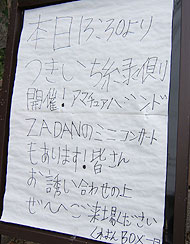 本日13:30より
つきいち縁側
開催！アマチュアバンド
ZADANのミニコンサート
もあります！皆さん
お誘い合わせの上
ぜひご来場ください
くれよんBOX一同